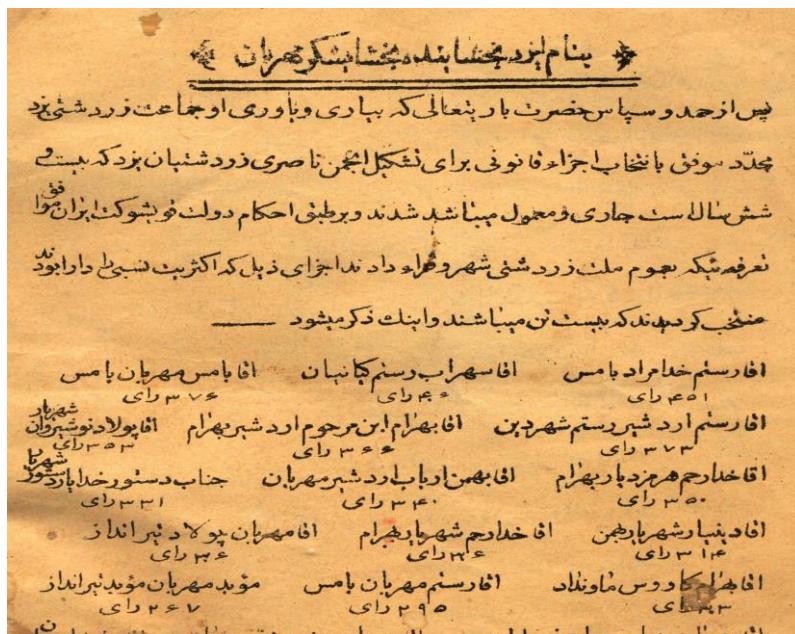 بنام ایزد بخشاینده بخشایشگر مهربان
پس از حمد و سپاس حضرت باریتعالی که بیاری و یاوری او جماعت زردشتی یزد
مجدّد موفق بانتخاب اجزاء قانونی برای تشکیل انجمن ناصری زردشتیان یزد که بیست و
شش سال است جاری و معمول میباشد شدند و برطبق احکام دولت قویشوکت ایران موافق
تعرفه که بعموم ملت زردشتی شهر و دادند اجزای ذیل که اکثریت نسبی را دارا بودند
منتخب گردیدند که بیست تن میباشند و اینک ذکر میشود
اقا رستم خدامراد بامس اقا سهراب رستم کیانیان اقا بامس مهربان بامس
۴۵۱ رای ۴۰۰ رای ۳۷۶ رای
اقا رستم اردشیر رستم شهردین اقا بهرام ابن مرحوم اردشیر بهرام اقا پولاد نوشیروان شهریار
۳۷۳ رای ۳۶۶ رای ۳۵۳ رای
اقا خدارحم هرمزدیار بهرام اقا بهمن ارباب اردشیر مهربان جناب دستور خدایارد دستور شهریار
۳۵۰ رای ۳۴۰ رای ۳۳۱ رای
اقا دینیار شهریار بهمن اقا خدارحم شهریار بهرام اقا مهربان پولاد تیرانداز
۳۱۴ رای رای رای
اقا کاوس ماونداد اقا رستم مهربان بامس موبد مهربان موبد تیرانداز
رای ۲۹۵ رای ۲۶۷ رای